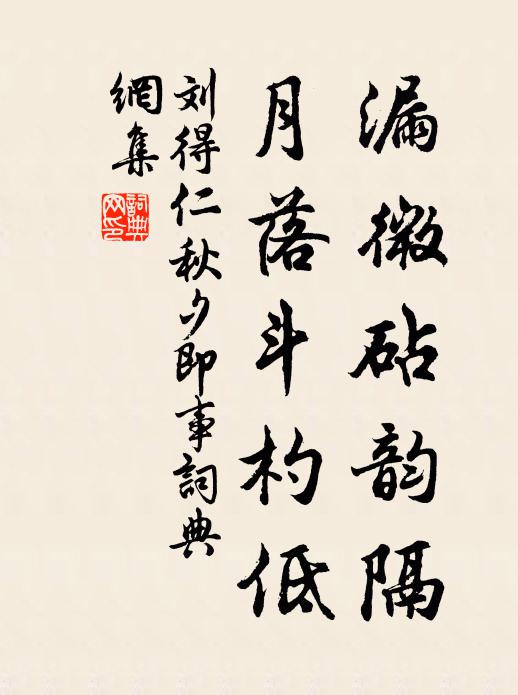 漏微砧韵隔
月落斗杓低
刘得仁秋夕即事詞典
網集
詞典
网印